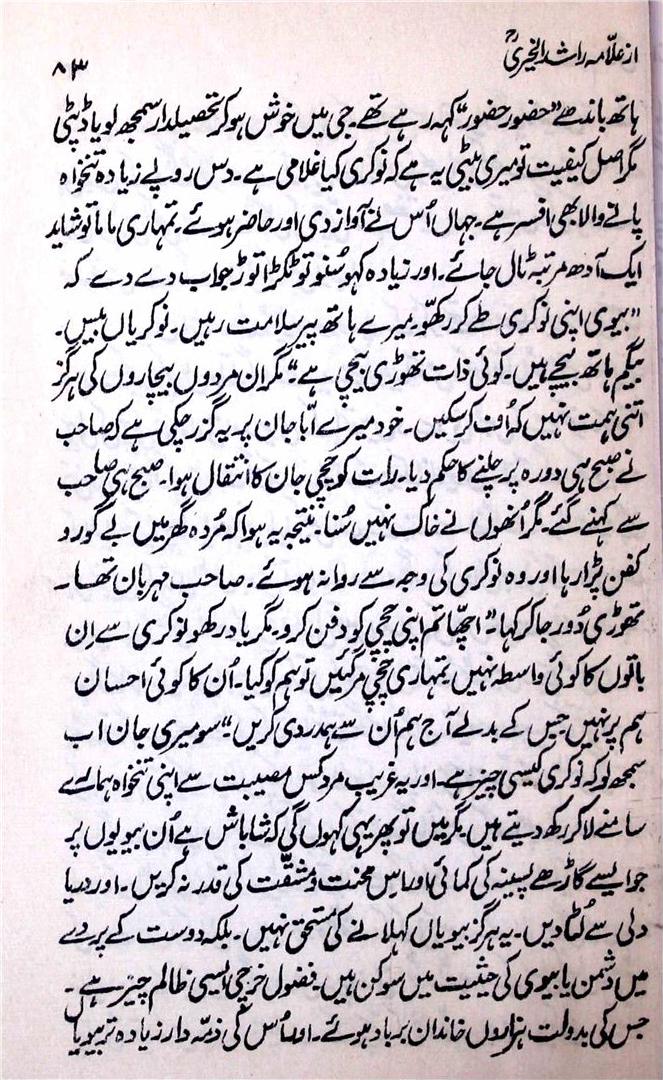 از علّامہ راشد الخیریؒ
۸۳
ہاتھ باندھے "حضور حضور" کہہ رہے تھے۔ جی میں خوش ہو کر تحصیلدار سمجھ لو یا ڈپٹی
مگر اصل کیفیت تو میری بیٹی یہ ہے کہ نوکری کیا غلامی ہے۔ دس روپے زیادہ تنخواہ
پانے والا بھی افسر ہے۔ جہاں اُس نے آواز دی اور حاضر ہوئے۔ تمہاری ماما تو شاید
ایک آدھ مرتبہ ٹال جائے۔ اور زیادہ کہو سُنو تو ٹکڑا توڑ جواب دے دے کہ
"بیوی اپنی نوکری طے کر رکھّو۔ میرے ہاتھ پیر سلامت رہیں۔ نوکریاں بیس۔
بیگم ہاتھ بیچے ہیں۔ کوئی ذات تھوڑی بیچی ہے۔" مگر ان مردوں بیچاروں کی ہرگز
اتنی ہمت نہیں کہ اُف کر سکیں۔ خود میرے ابّا جان پر یہ گزر چکی ہے کہ صاحب
نے صبح ہی دورہ پر چلنے کا حکم دیا۔ رات کو چچی جان کا انتقال ہوا۔ صبح ہی صاحب
سے کہنے گئے۔ مگر اُنھوں نے خاک نہیں سُنا۔ نتیجہ یہ ہوا کہ مُردہ گھر میں بے گور و
کفن پڑا رہا اور وہ نوکری کی وجہ سے روانہ ہوئے۔ صاحب مہربان تھا۔
تھوڑی دُور جا کر کہا۔ "اچھّا تم اپنی چچی کو دفن کرو۔ مگر یاد رکھو نوکری سے اِن
باتوں کا کوئی واسطہ نہیں۔ تمہاری چچی مر گئیں تو ہم کو کیا۔ اُن کا کوئی احسان
ہم پر نہیں جس کے بدلے آج ہم اُن سے ہمدردی کریں۔" سو میری جان اب
سمجھ لو کہ نوکری کیسی چیز ہے۔ اور یہ غریب مرد کس مصیبت سے اپنی تنخواہ ہمارے
سامنے لا کر رکھ دیتے ہیں۔ مگر میں تو پھر یہی کہوں گی کہ شاباش ہے اُن بیویوں پر
جو ایسے گاڑھے پسینہ کی کمائی اور اس محنت و مشقّت کی قدر نہ کریں۔ اور دریا
دلی سے لُٹا دیں۔ یہ ہرگز بیویاں کہلانے کی مستحق نہیں۔ بلکہ دوست کے پردے
میں دشمن یا بیوی کی حیثیت میں سوکن ہیں۔ فضول خرچی ایسی ظالم چیز ہے۔
جس کی بدولت ہزاروں خاندان برباد ہوئے۔ اور اُس کی ذمّہ دار زیادہ تر بیویاں